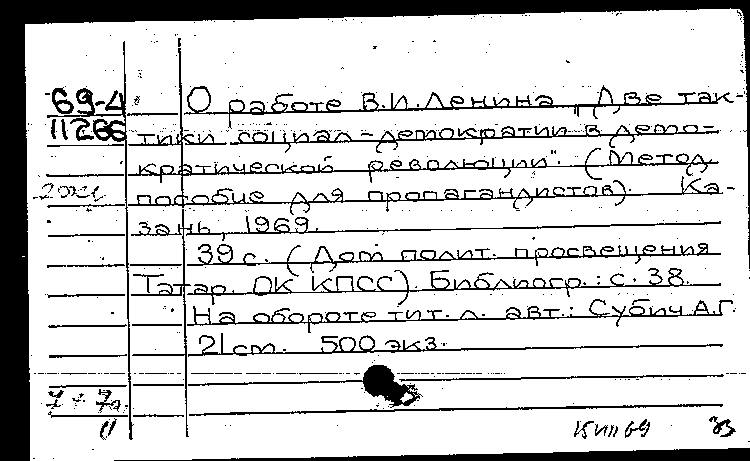 69-4 О работе В.И.Ленина „Две так-
11266 тики социал-демократии в демо-
кратической революции". (Метод.
2экз пособие для пропагандистов). Ка-
зань, 1969.
39 с. (Дом полит. просвещения
Татар. ОК КПСС). Библиогр.: с. 38.
На обороте тит. л. авт.: Субич А.Г.
21 см. 500 экз.
7 + 7а